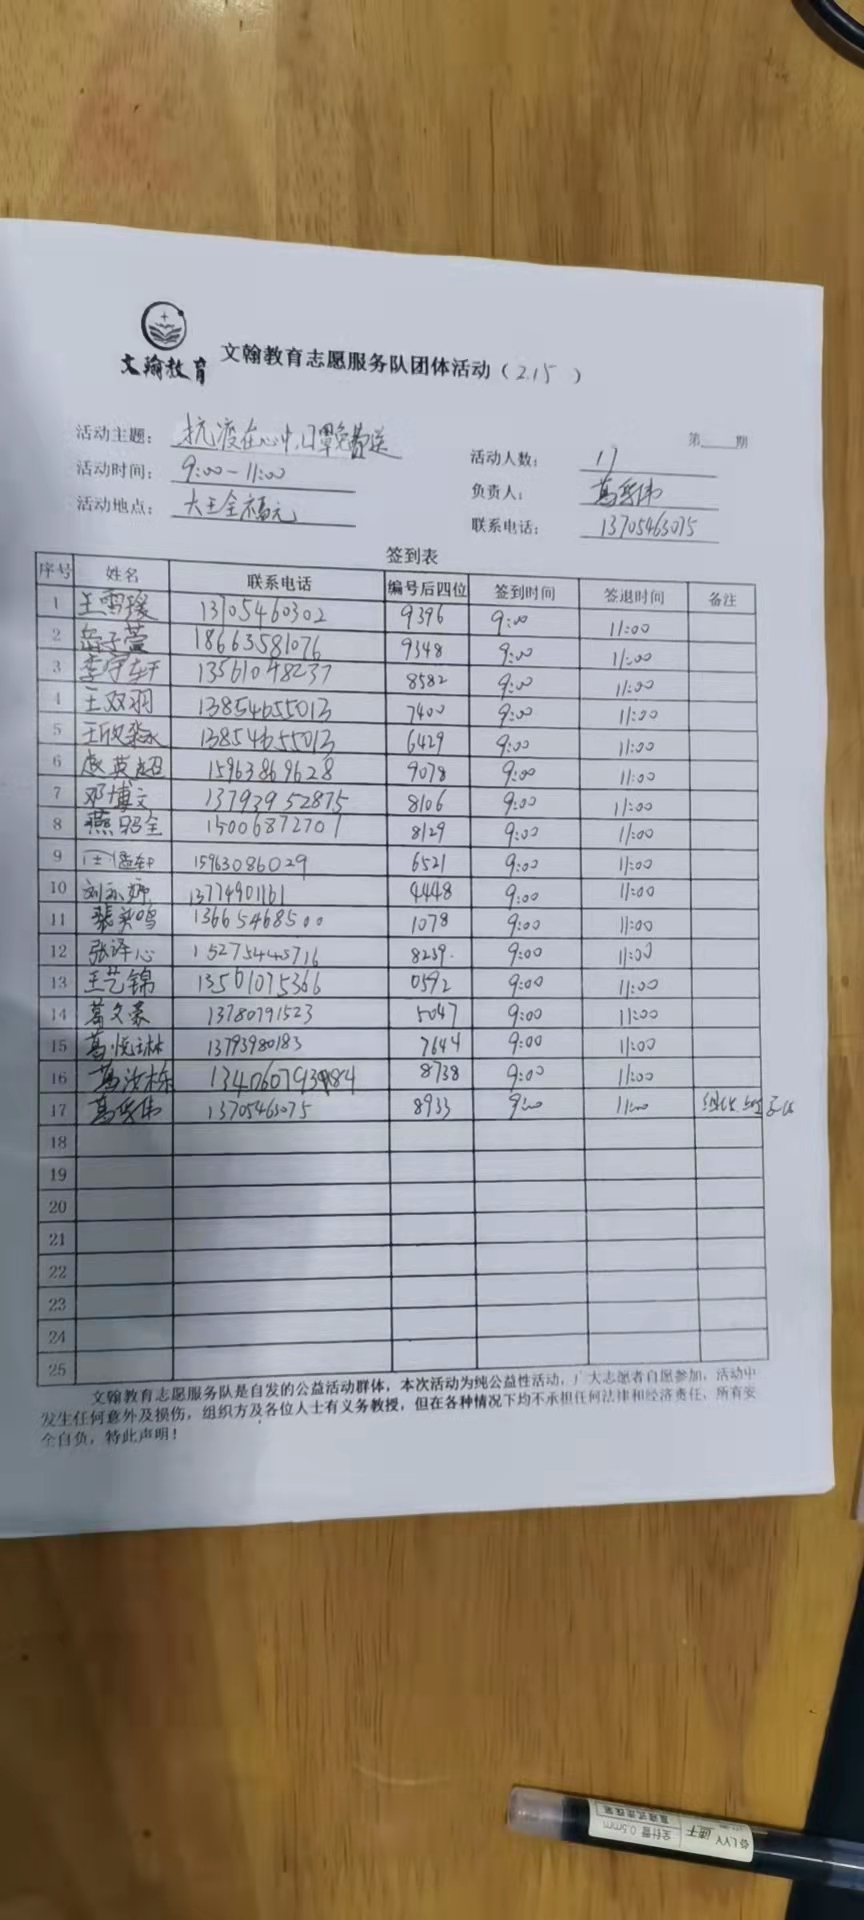 文翰教育
文翰教育志愿服务队团体活动（2.15）
第 期
活动主题：抗疫在心中，口罩免费送
活动人数：17
活动时间：9:00-11:00
负责人：葛
活动地点：大王全福元
联系电话：13705463075
签到表
序号 姓名 联系电话 编号后四位 签到时间 签退时间 备注
1 王雪瑗 13705460302 9396 9:00 11:00
2 岳子萱 18663581076 9348 9:00 11:00
3 李宇轩 13561048237 8582 9:00 11:00
4 王双羽 13854655013 7400 9:00 11:00
5 王欣 13854655013 6429 9:00 11:00
6 英超 15963869628 9078 9:00 11:00
7 邓博文 13793952875 8106 9:00 11:00
8 燕 15006872707 8129 9:00 11:00
9 15963086029 6521 9:00 11:00
10 刘 13774901161 4448 9:00 11:00
11 13665468500 1078 9:00 11:00
12 张译心 15275445716 8239. 9:00 11:00
13 王艺锦 13561075366 0592 9:00 11:00
14 葛文豪 13780791523 5047 9:00 11:00
15 葛悦 13793980183 7644 9:00 11:00
16 葛汝栋 8738 9:00 11:00
17 葛 13705463075 8933 9:00 11:00
18
19
20
21
22
23
24
25
文翰教育志愿服务队是自发的公益活动群体，本次活动为纯公益性活动，广大志愿者自愿参加，活动中
发生任何意外及损伤，组织方及各位人士有义务教授，但在各种情况下均不承担任何法律和经济责任，所有安
全自负，特此声明！
速干
全针管 0.5mm